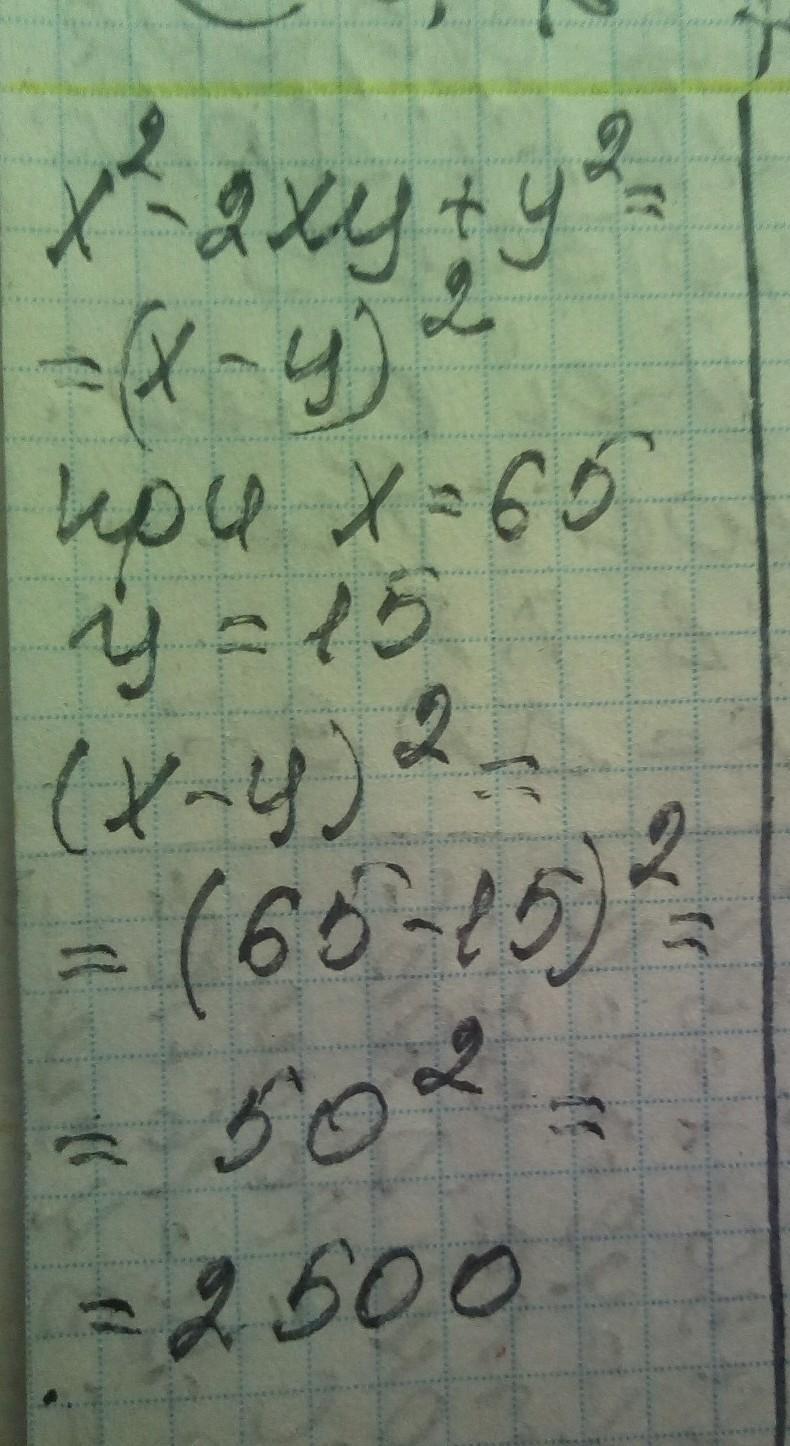 x² - 2xy + y² =
= (x - y)²
при x = 65
y = 15
(x - y)² =
= (65 - 15)² =
= 50² =
= 2500